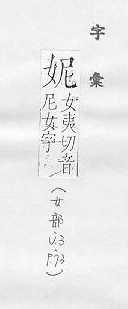 字彙
妮
女夷切音
尼女字
(女部
丑3
P73)